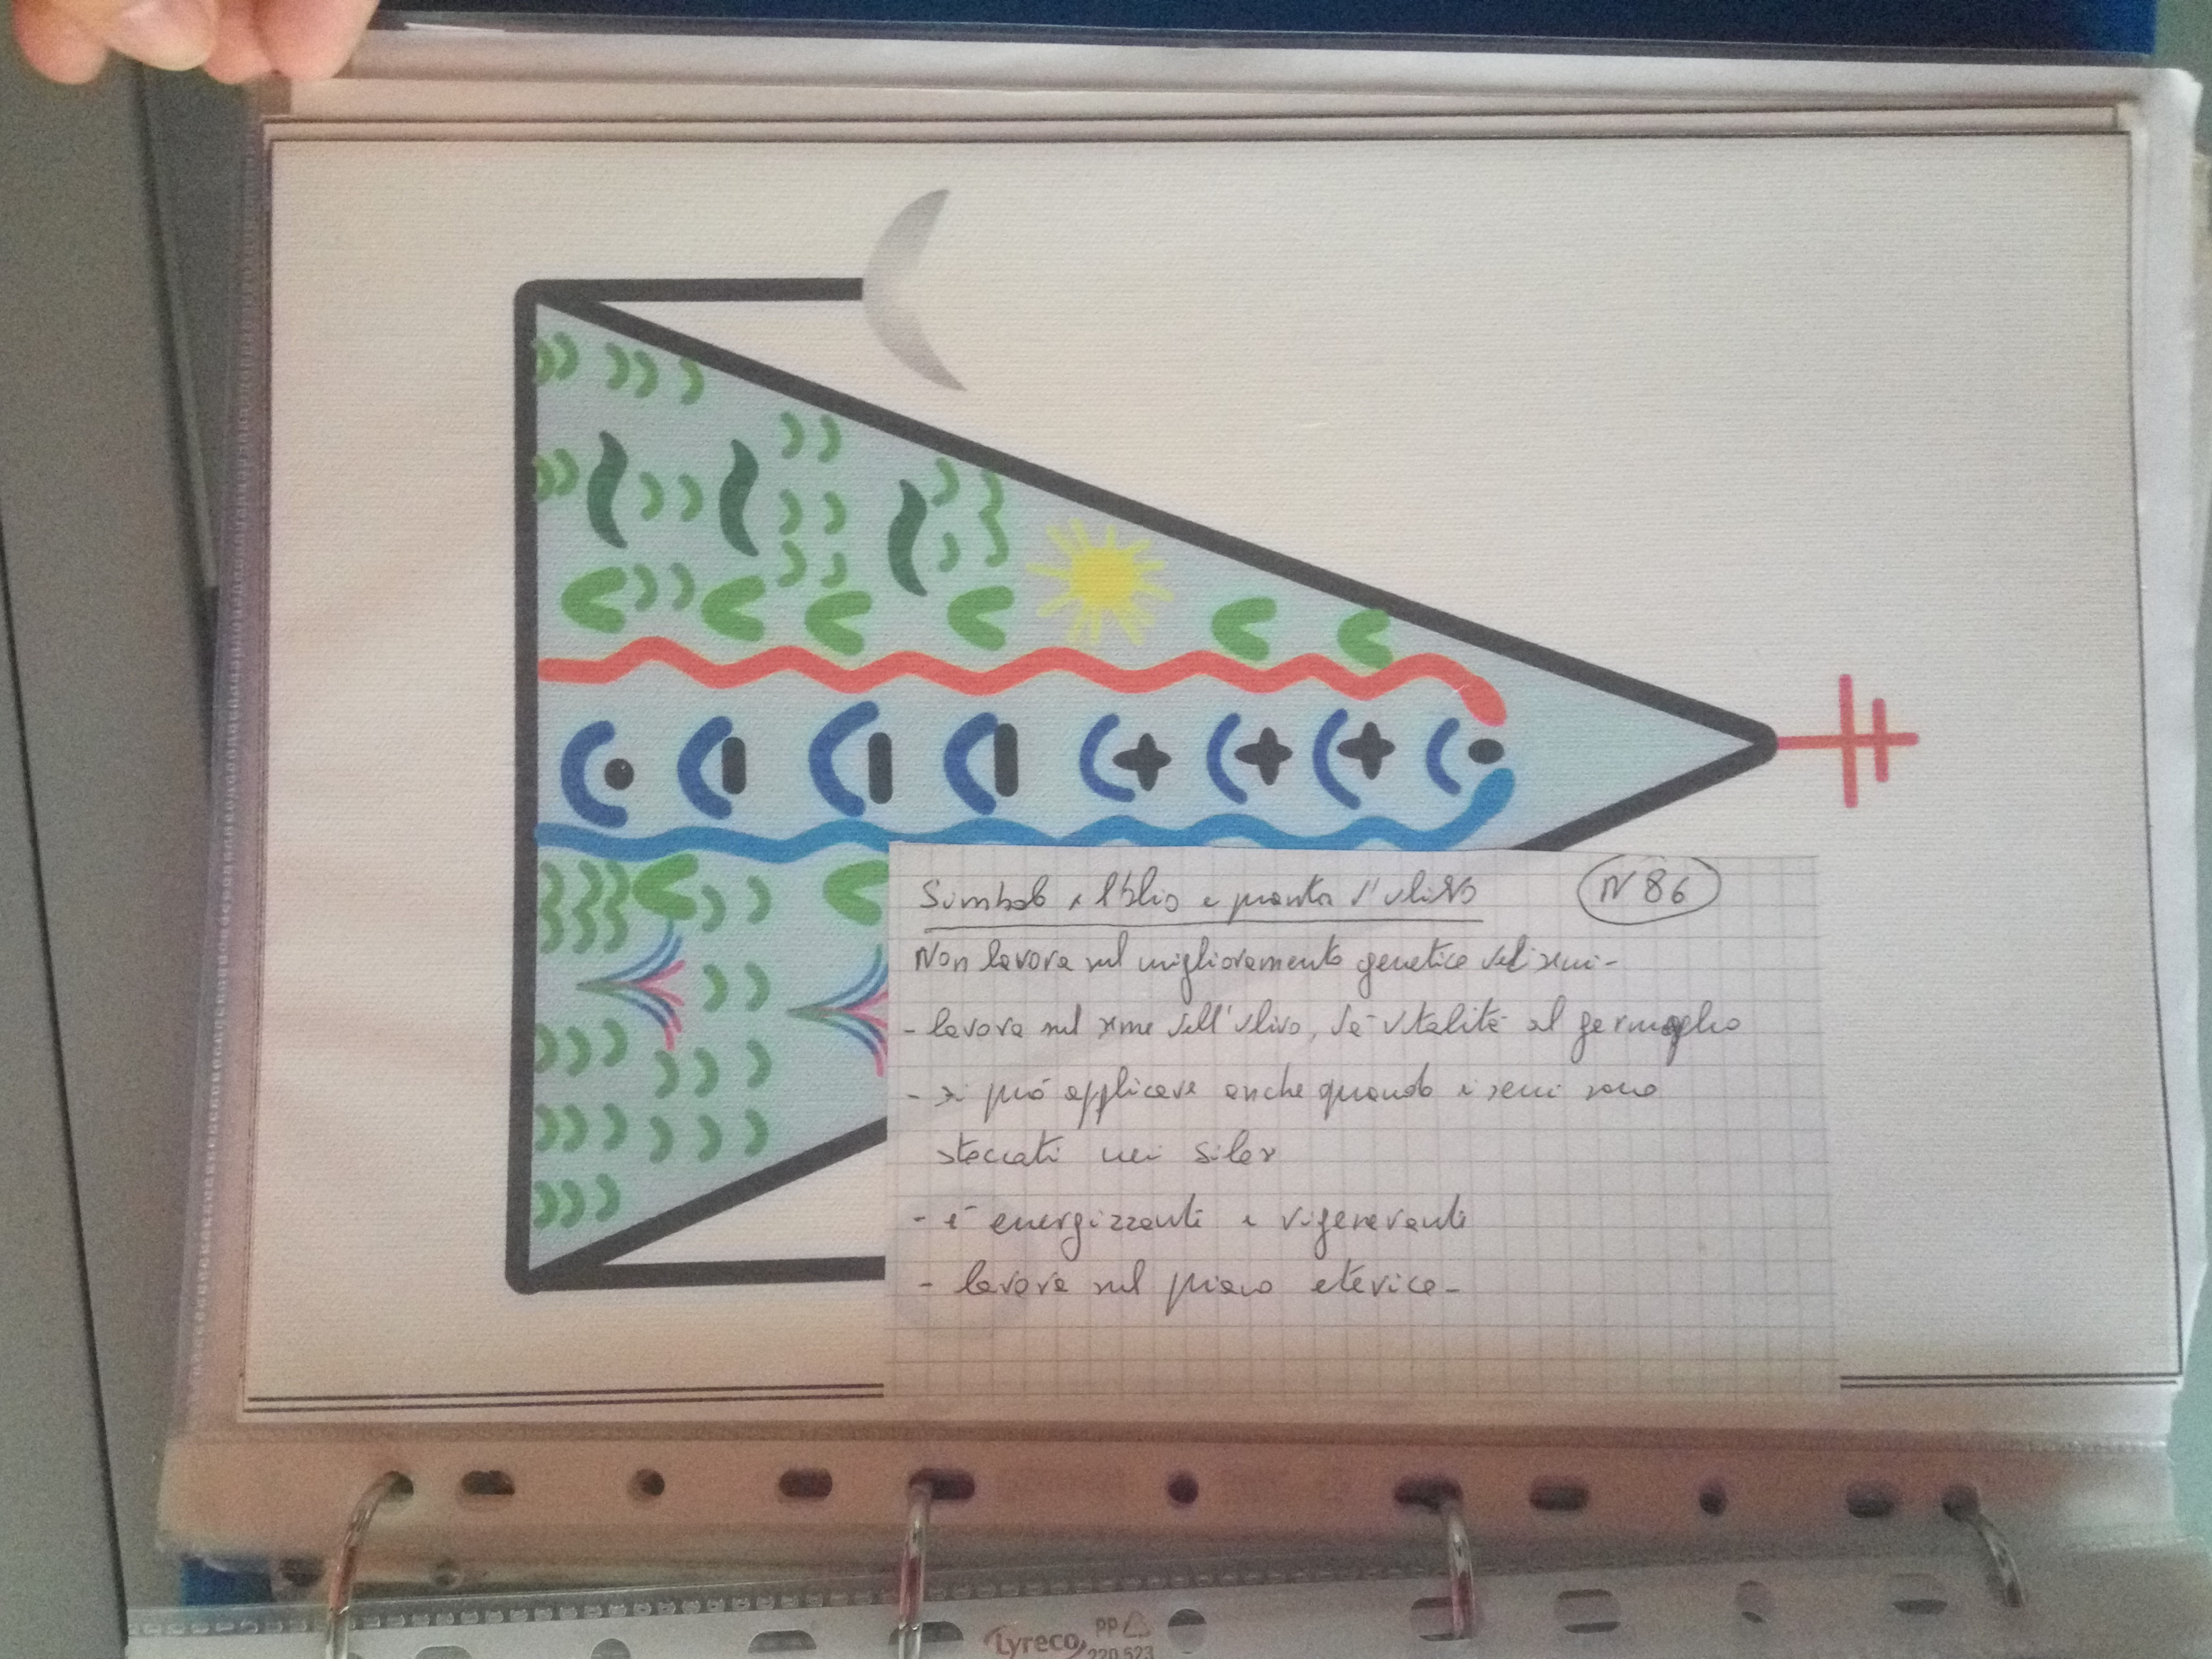 Simbolo x l'olio e pianta d'ulivo
N 86
Non lavora sul miglioramento genetico dei semi-
- lavora sul seme dell'ulivo, dà vitalità al germoglio
- si può applicare anche quando i semi sono
stoccati nei silos
- è energizzante e rigenerante
- lavora sul piano eterico-
Lyreco
PP
220.523